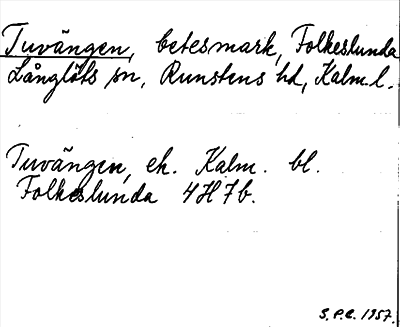 Tuvängen, betesmark, Folkeslunda
Långlöts sn, Runstens hd, Kalm. l.
Tuvängen, ek. Kalm. bl.
Folkeslunda 4H7b.
S.P.C. 1957.